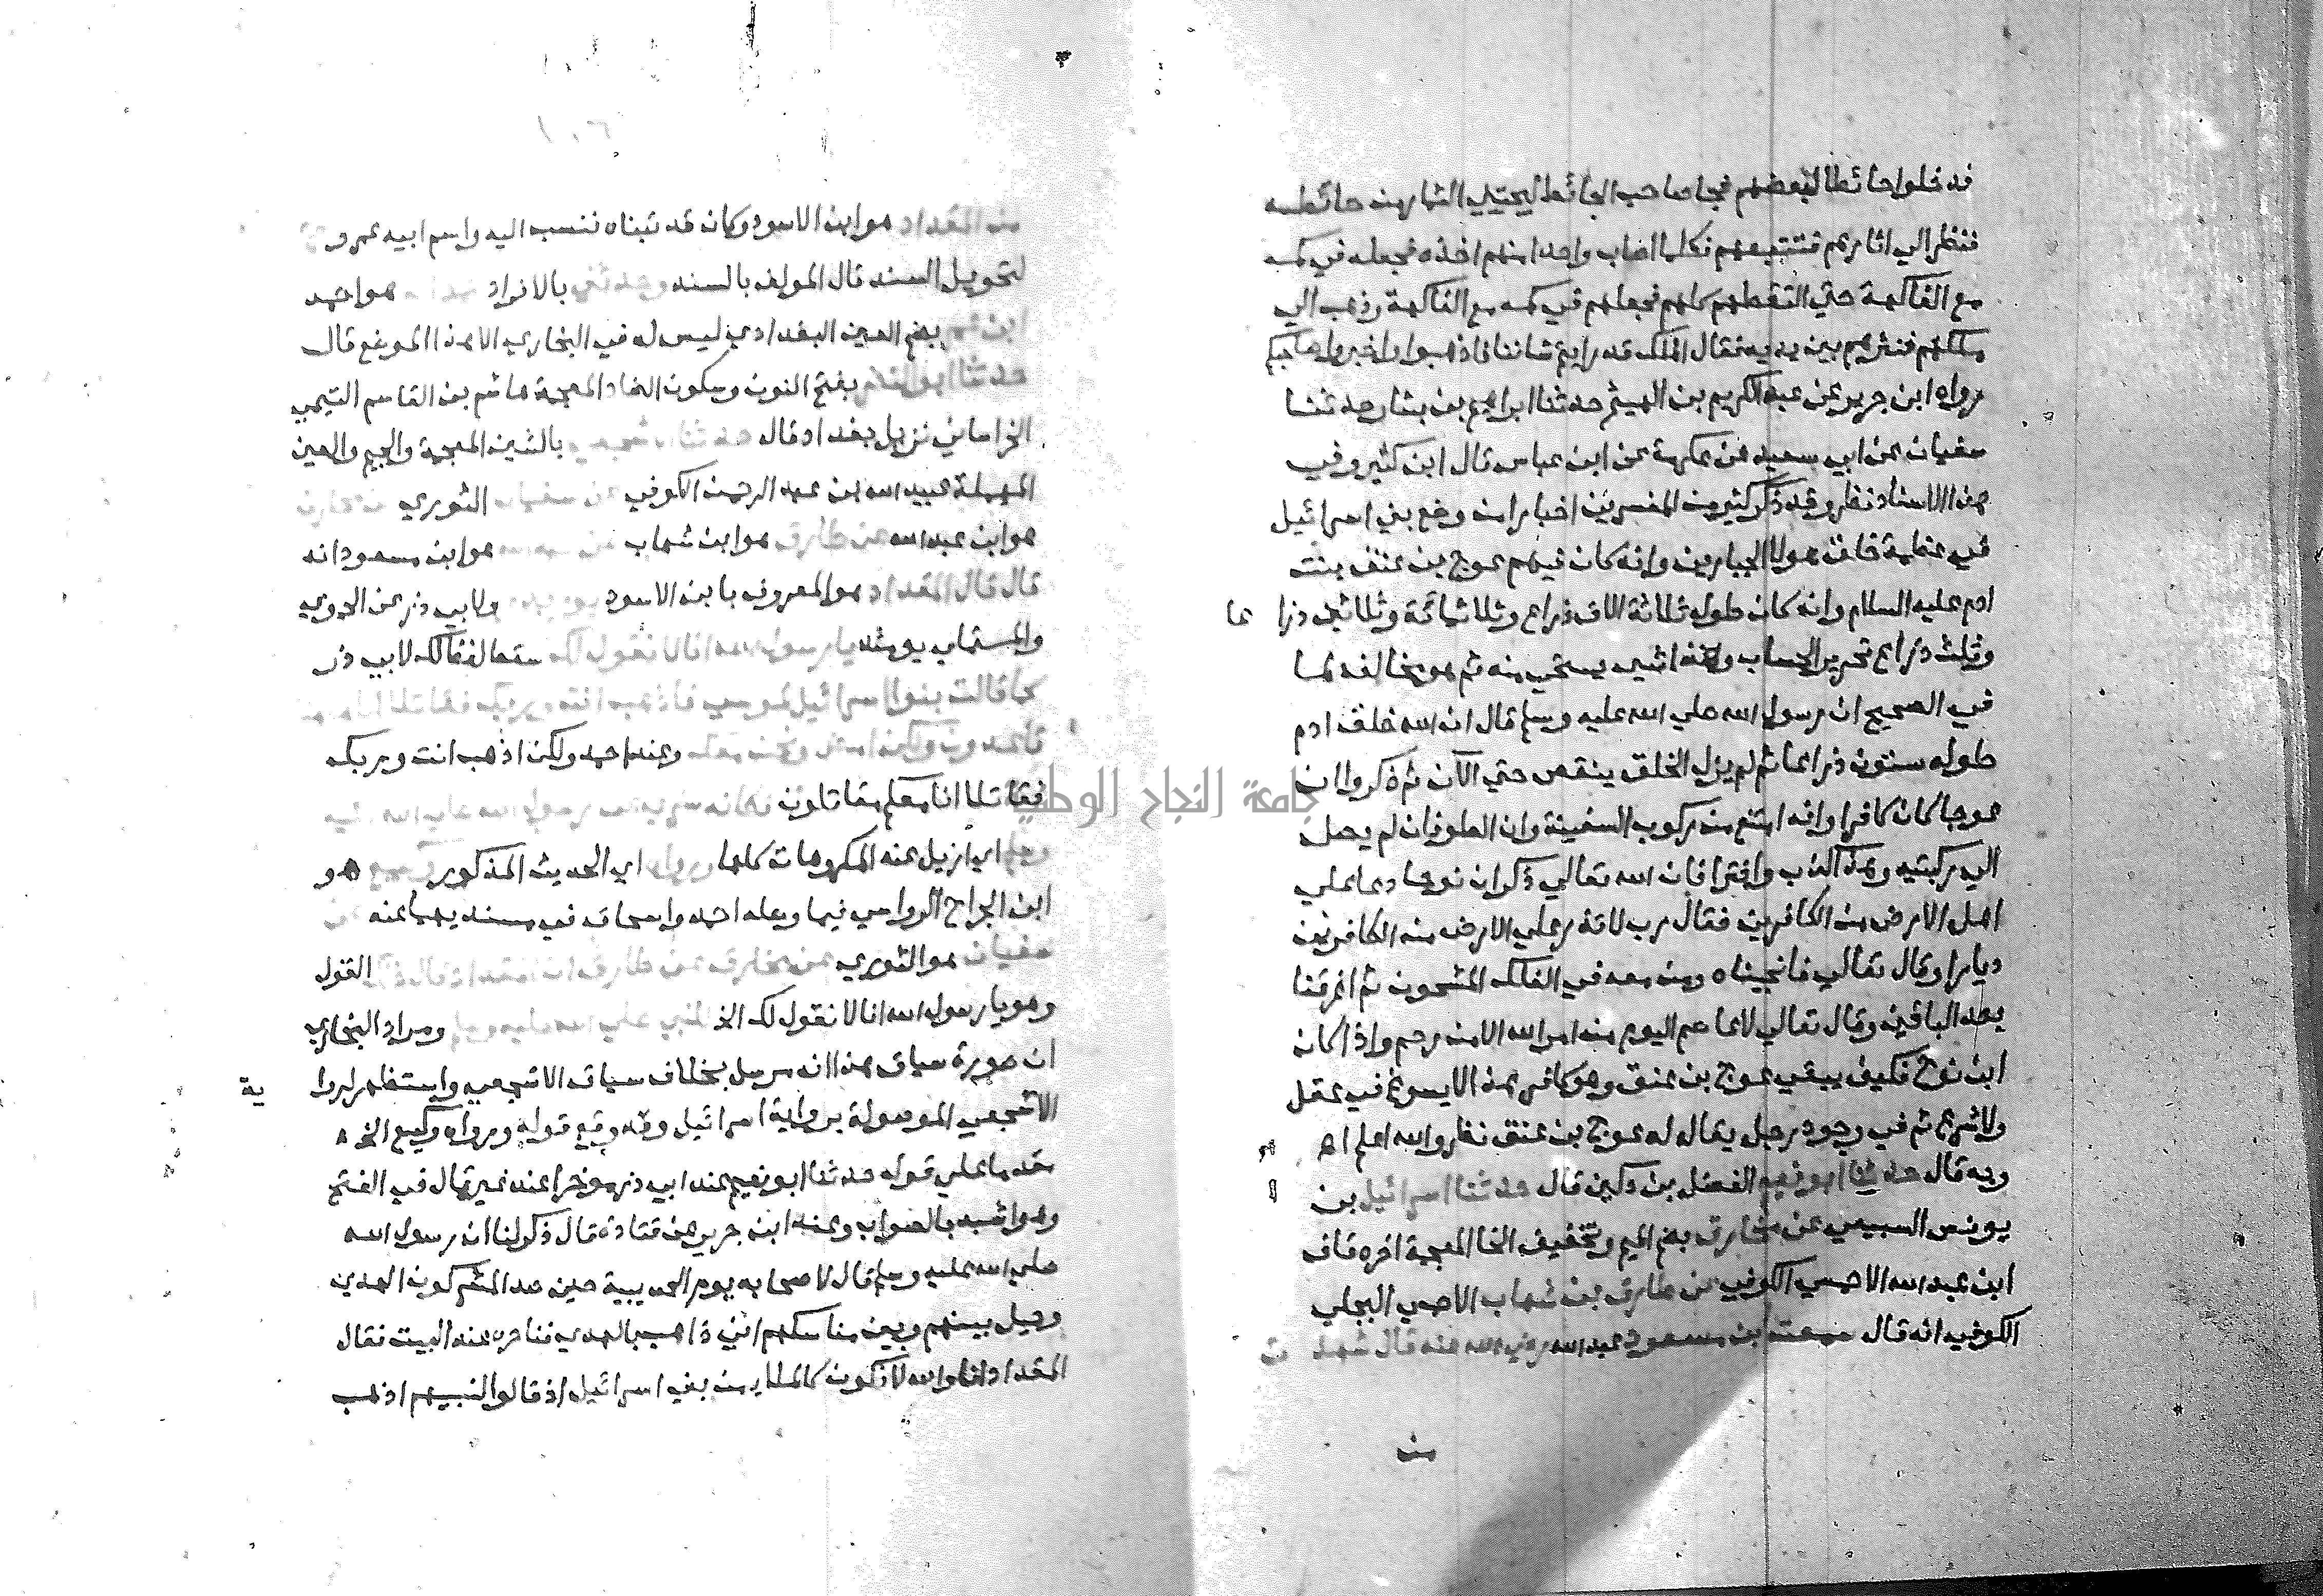 فدخلوا حائطا لبعضهم فجا صاحب الحائط ليجتني الثمار من حائطه
فنظر الي اثارهم فتتبعهم فكلما اصاب واحدا منهم اخذه فجعله في كمه
مع الفاكهة حتي التقطهم كلهم فجعلهم في كمه مع الفاكهة وذهب الي
ملكهم فنثرهم بين يديه فقال الملك قد رايتم شاننا فاذهبوا واخبروا صاحبكم
رواه ابن جرير عن عبد الكريم بن الهيثم حدثنا ابراهيم بن بشار حدثنا
سفيان عن ابي سعيد عن عكرمة عن ابن عباس قال ابن كثير وفي
هذا الاسناد نظر وقد ذكر كثير من المفسرين اخبارا من وضع بني اسرائيل
في عظمة خلق هولا الجبارين وانه كان فيهم عوج بن عنق بنت
ادم عليه السلام وانه كان طوله ثلاثة الاف ذراع وثلاثمائة وثلاثين ذرا عا
وثلث ذراع تحرير الحساب وهذا شي يستحي منه ثم هو مخالف لما
في الصحيح ان رسول الله صلي الله عليه وسلم قال ان الله خلق ادم
طوله ستون ذراعا ثم لم يزل الخلق ينقص حتي الآن ثم ذكروا ان
عوجا كان كافرا وانه امتنع من ركوب السفينة وان الطوفان لم يصل
الي ركبتيه وهذا كذب وافترا فان الله تعالي ذكر ان نوحا دعا علي
اهل الارض من الكافرين فقال رب لا تذر علي الارض من الكافرين
ديارا وقال تعالي فانجيناه ومن معه في الفلك المشحون ثم اغرقنا
بعد الباقين وقال تعالي لا عاصم اليوم من امر الله الا من رحم واذا كان
ابن نوح فكيف يبقي عوج بن عنق وهو كافر هذا لا يسوغ في عقل
ولا شرع ثم في وجود رجل يقال له عوج بن عنق نظر والله اعلم اه
وبه قال حدثنا ابو نعيم الفضل بن دكين قال حدثنا اسرائيل بن
يونس السبيعي عن مخارق بضم الميم وتخفيف الخا المعجمة اخره قاف
ابن عبد الله الاحمسي الكوفي عن طارق بن شهاب الاحمسي البجلي
الكوفي انه قال سمعت ابن مسعود عبد الله رضي الله عنه قال شهد ت
من
من المقداد هو ابن الاسود وكان قد تبناه فنسب اليه واسم ابيه عمرو
لتحويل السند قال المولف بالسند وحدثني بالافراد هو احمد
ابن بضم العين البغدادي ليس له في البخاري الا هذا الموضع قال
حدثنا ابو النضر بفتح النون وسكون الضاد المعجمة هاشم بن القاسم التيمي
الخراساني نزيل بغداد قال بالشين المعجمة والجيم والعين
المهملة عبيد الله بن عبد الرحمن الكوفي الثوري
هو ابن عبد الله هو ابن شهاب هو ابن مسعود انه
قال قال المقداد هو المعروف بابن الاسود ولابي ذر عن الحموي
والمستملي يومئذ سقط لفظ لك لابي ذر
كما قالت بنوا اسرائيل لموسي فاذهب
وعند احمد ولكن اذهب انت وربك
فقاتلا انا معكم مقاتلون
اي ازيل عنه المكروهات كلها اي الحديث المذكور هو
ابن الجراح الرواسي فيما وصله احمد واسحاق في مسنديهما عنه
سفيان هو الثوري القول
وهو يا رسول الله انا لا نقول لك الخ ومراد البخاري
ان صورة سياق هذا انه مرسل بخلاف سياق الاشجعي واستظهر لروا ية
الاشجعي الموصولة برواية اسرائيل وقد وقع قوله ورواه وكيع الخ
مقدما علي قوله حدثنا ابو نعيم عند ابي ذر موخرا عند غيره قال في الفتح
وهو اشبه بالصواب وعند ابن جرير عن قتادة قال ذكر لنا ان رسول الله
صلي الله عليه وسلم قال لاصحابه يوم الحديبية حين صد المشركون الهدي
وحيل بينهم وبين مناسكهم اني ذاهب بالهدي فناحره عند البيت فقال
المقداد انا والله لا نكون كالملا من بني اسرائيل اذ قالوا لنبيهم اذهب
جامعة النجاح الوطنية